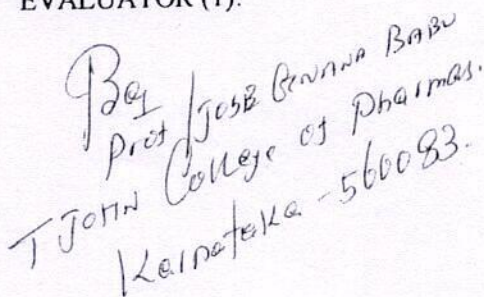 EVALUATOR (1):
Prof / JOSE GNANA BABU
T JOHN College of Pharmacy.
Karnataka - 560083.